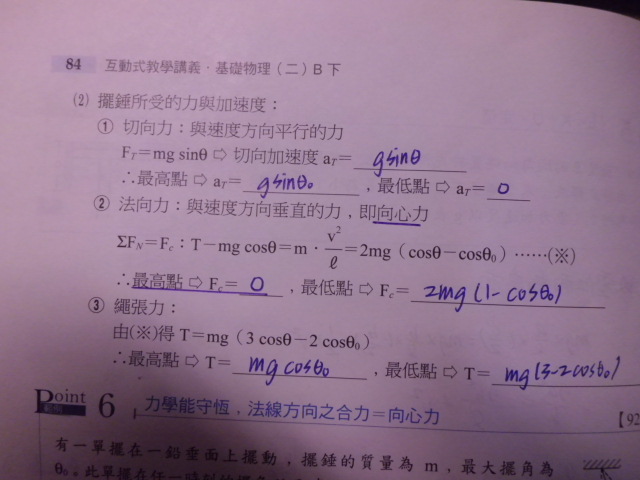 84 互動式教學講義·基礎物理(二)B下
(2) 擺錘所受的力與加速度：
① 切向力：與速度方向平行的力
F_T＝mg sinθ ⇨ 切向加速度 a_T＝ gsinθ
∴最高點 ⇨ a_T＝ gsinθ₀ ，最低點 ⇨ a_T＝ 0
② 法向力：與速度方向垂直的力，即向心力
ΣF_N＝F_c：T－mg cosθ＝m·v²/ℓ＝2mg（cosθ－cosθ₀）……(※)
∴最高點 ⇨ F_c＝ 0 ，最低點 ⇨ F_c＝ 2mg(1-cosθ₀)
③ 繩張力：
由(※)得 T＝mg（3 cosθ－2 cosθ₀）
∴最高點 ⇨ T＝ mgcosθ₀ ，最低點 ⇨ T＝ mg(3-2cosθ₀)
Point 6 力學能守恆，法線方向之合力＝向心力 【92
有一單擺在一鉛垂面上擺動，擺錘的質量為 m，最大擺角為
θ₀。此單擺在任一時刻的擺角